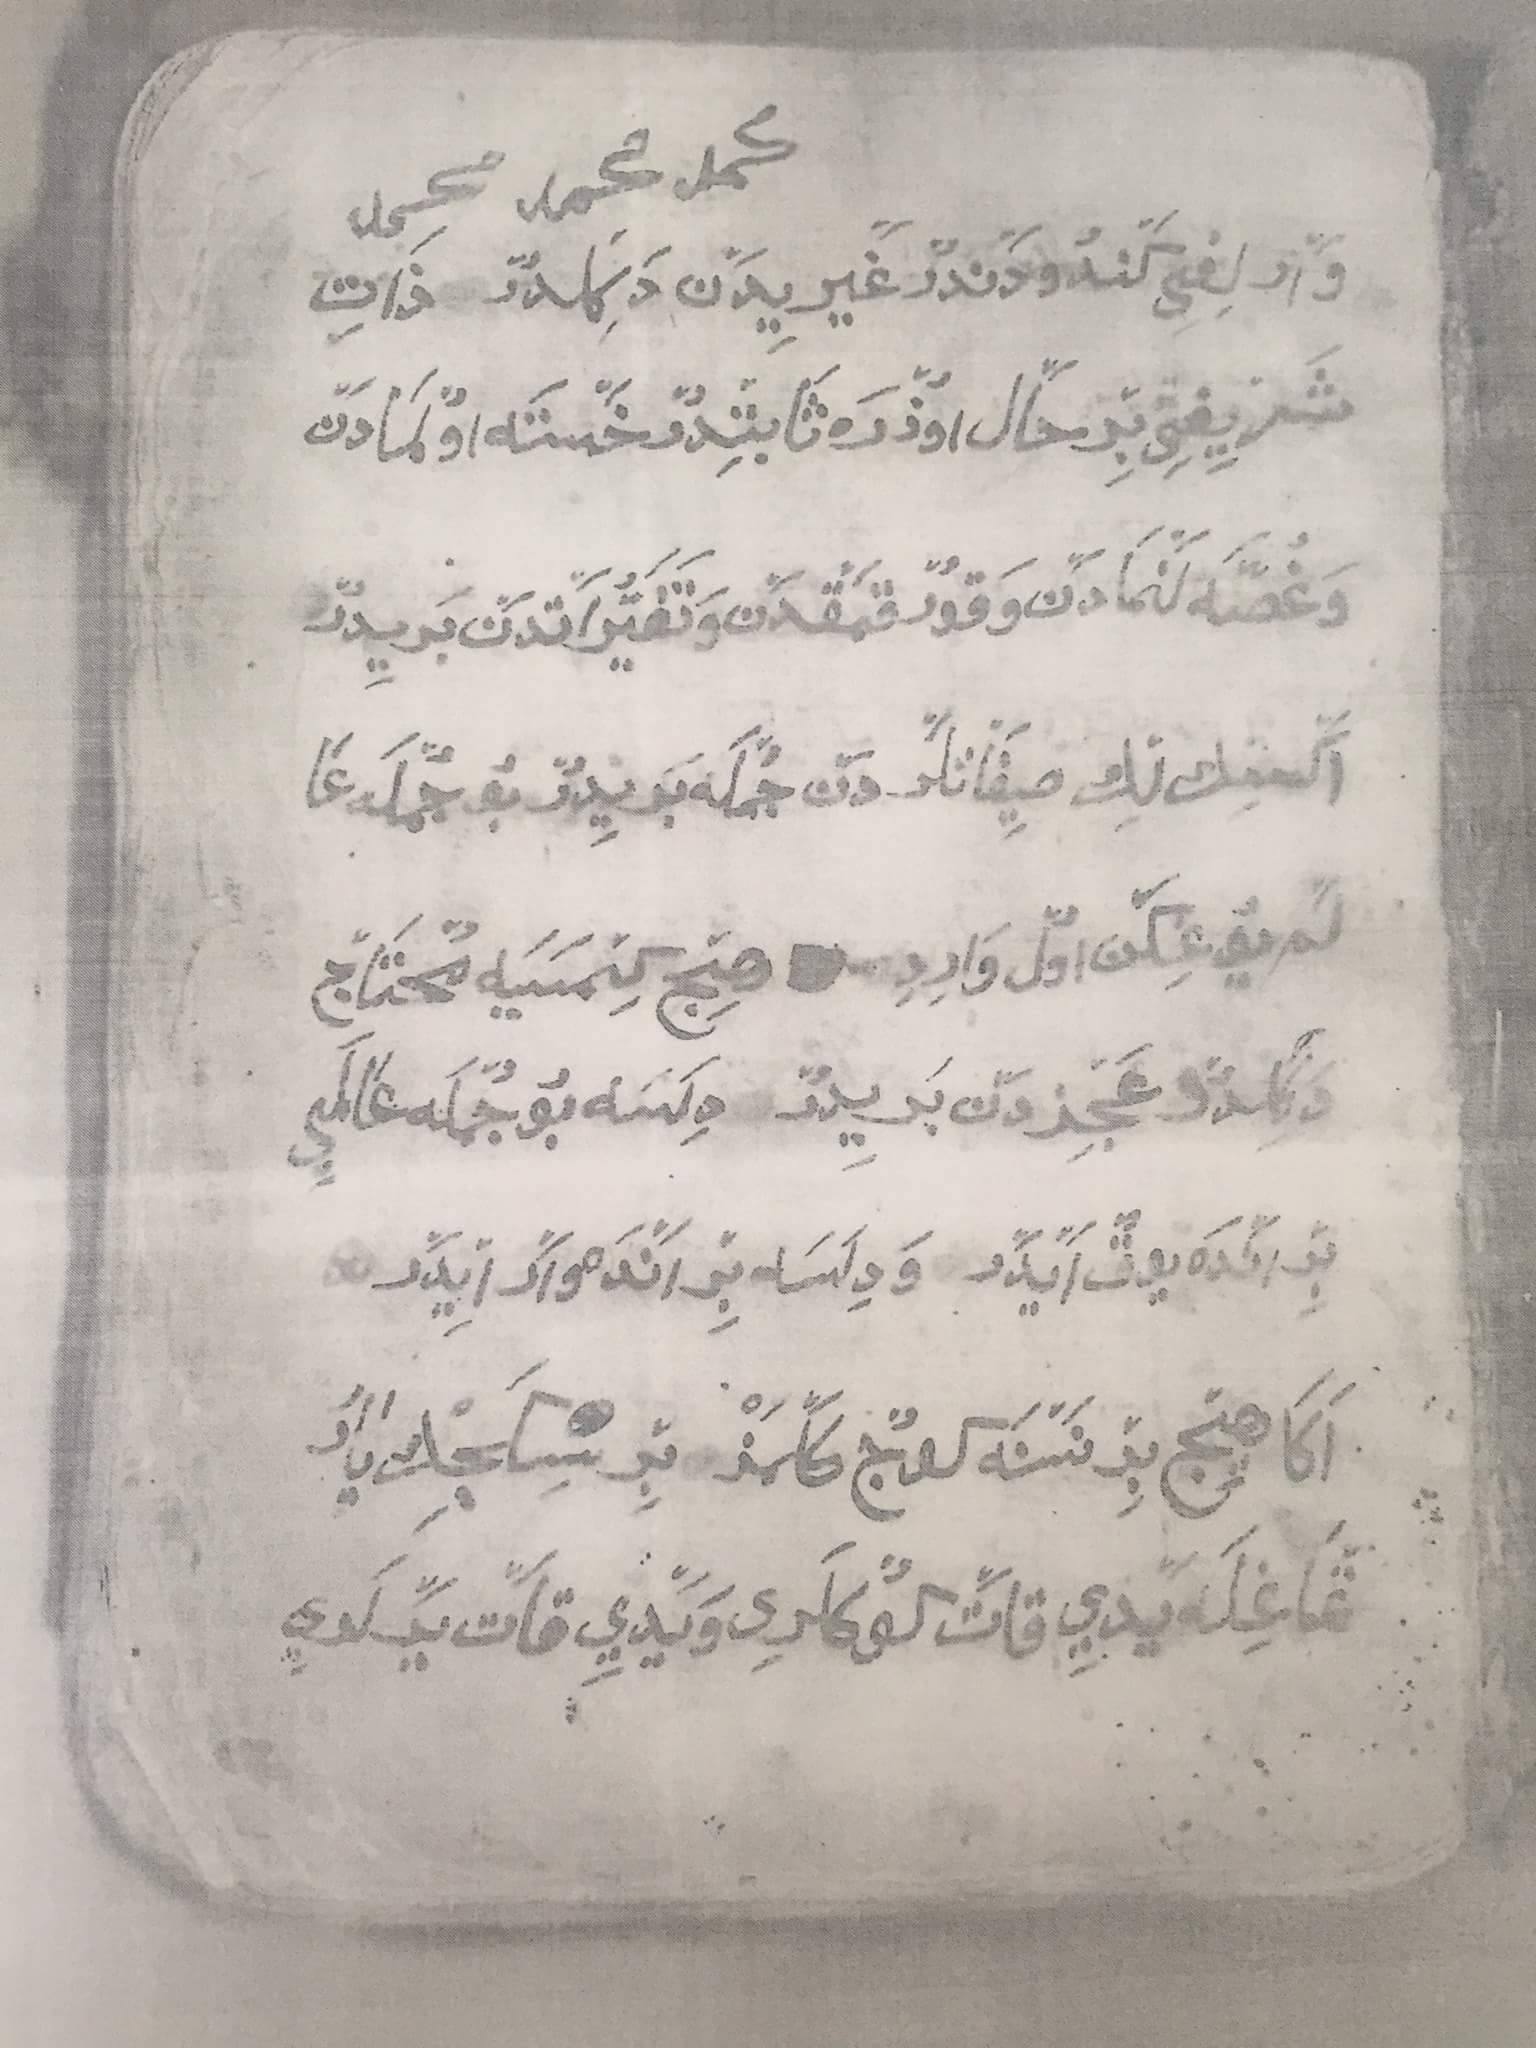 محمد محمد محمد
وَارلِغِي كَندُودَندُر غَيرِيدَن دَكِلدُر ذَاتِ
شَرِيفِي بِر حَال اوُزرَه ثَابِتدُر خَستَه اوُلمَادَن
وَغُصَّه لَنمَادَن وَقوُرقمَقدَن وَتَغَيُّر اَتدَن بَرِيدُر
اَكسِكلِك صِفَاتلَردَن جُملَه بَرِيدُر بُو جُملَه عَا
لَم يوُغِكَن اوُل وَاردِ هِيج كِمسَيَه مُحتَاج
دَكِلدُر عَجِزدَن بَرِيدُر دِلَسَه بوُ جُملَه عَالَمِي
بِر اندَه يوُق اَيدَر وَدِلَسَه بِر اَندَه وَار اَيدَر
اَكَا هِيج بِر نَسنَه كوُج كَلمَز بِر سِكَاجِك يَارَ
تمَاغِلَه يَدِي قَات كوُكلَرِي وَيَدِي قَات يَرلَرِي